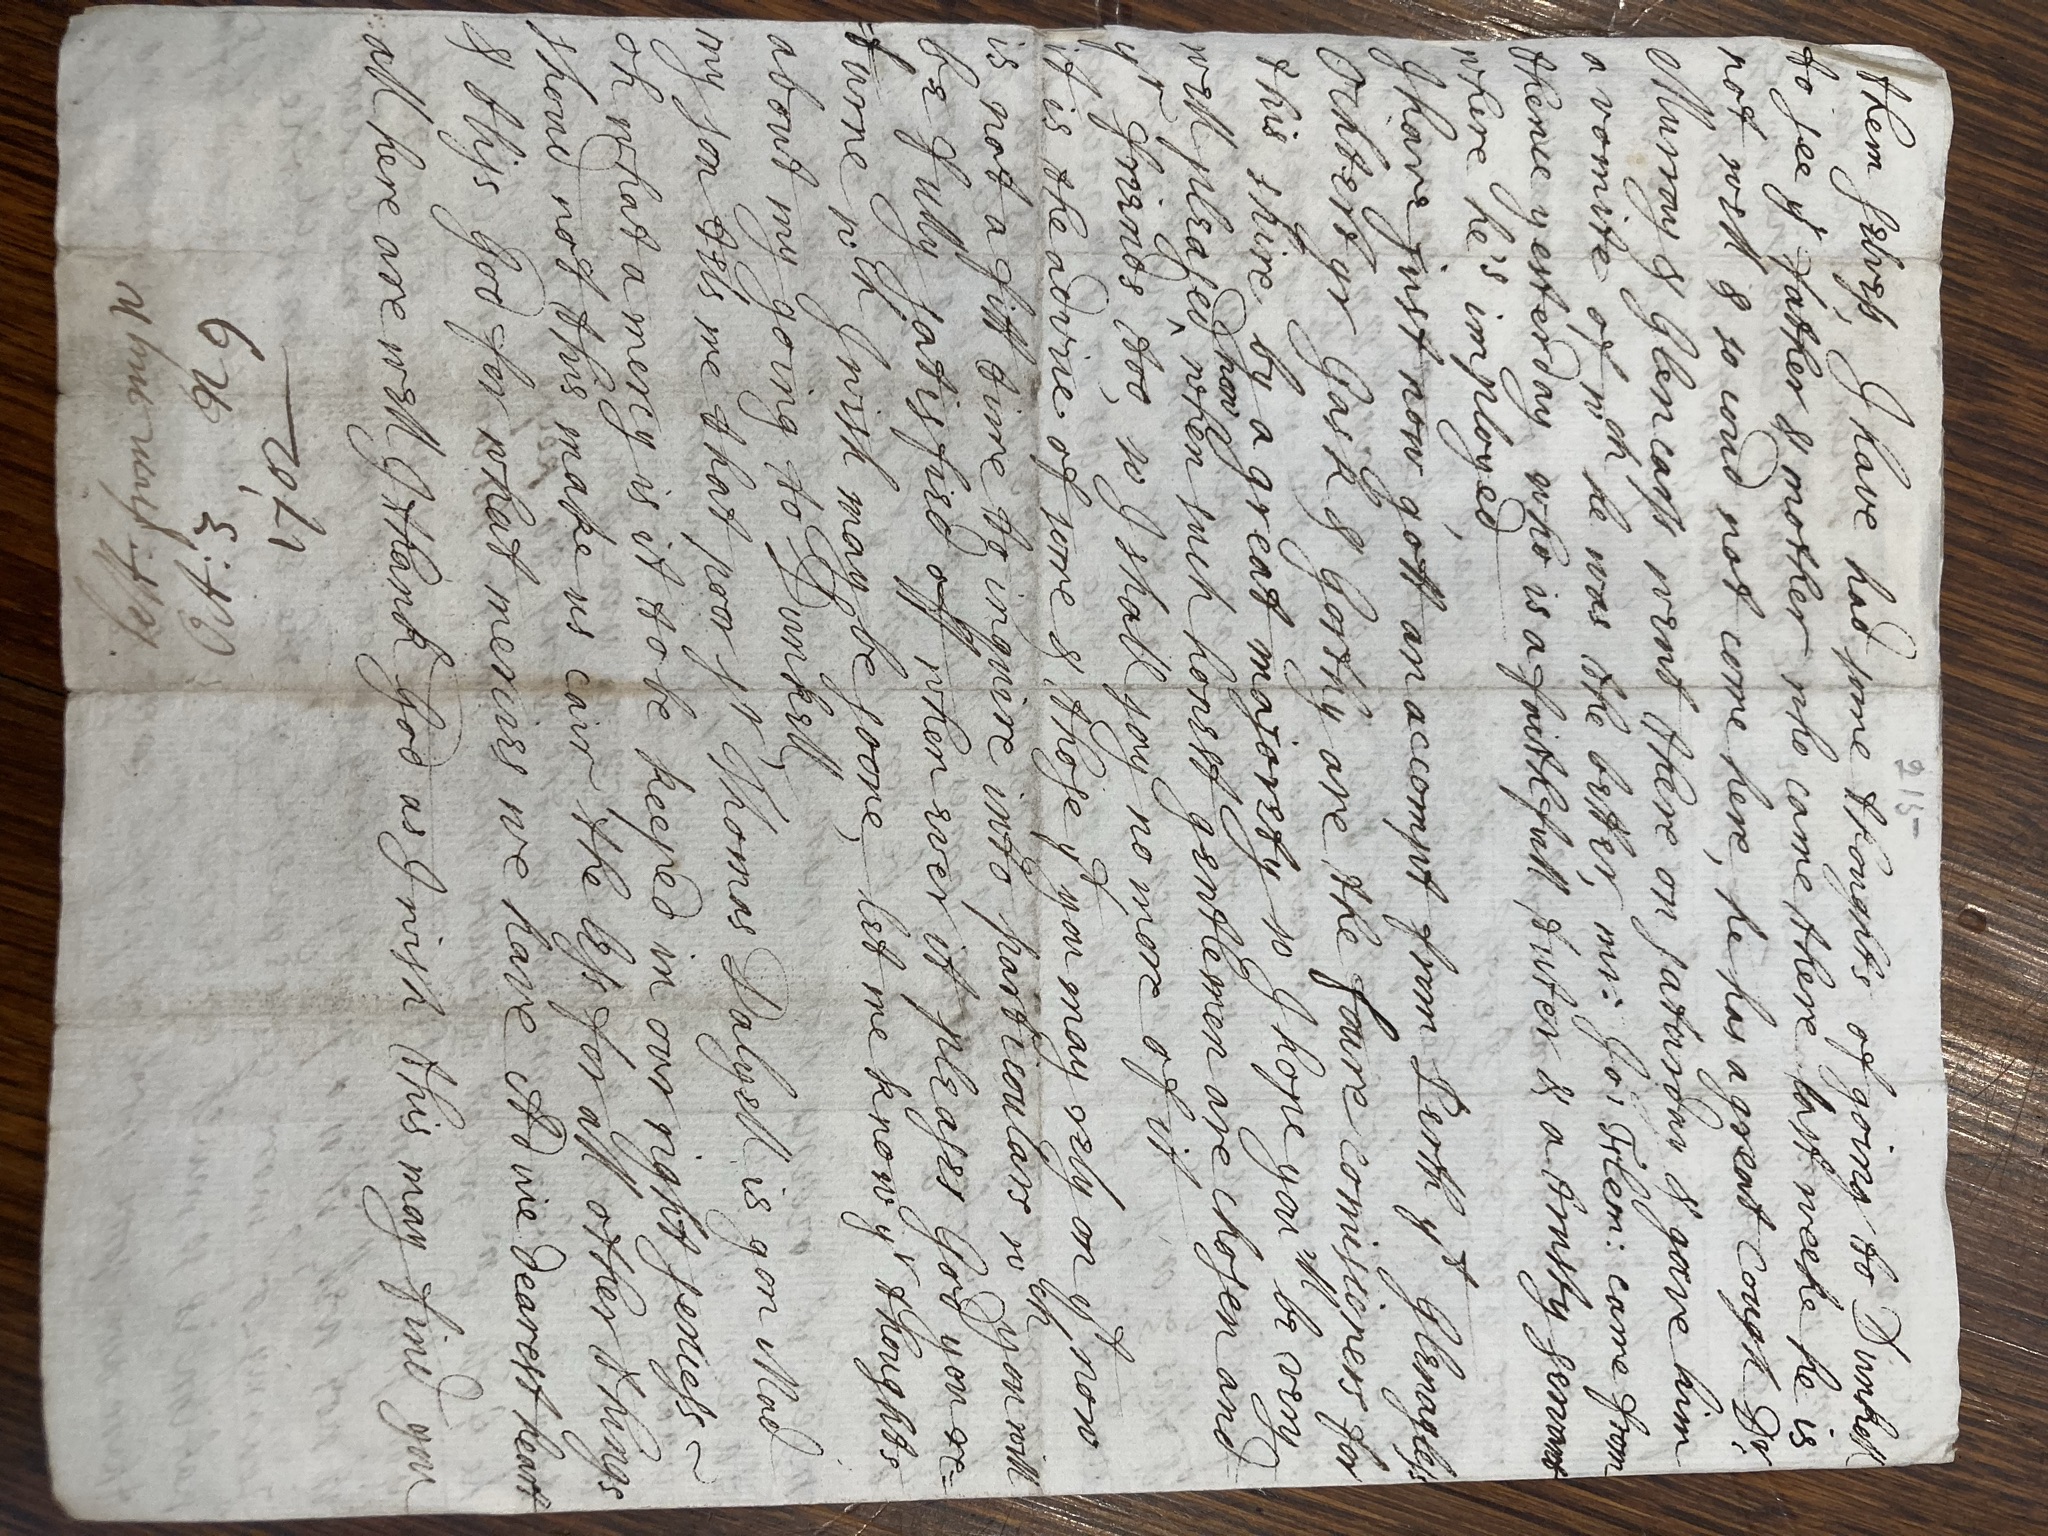 215
them selvess, I have had some thoughts of going to Dunkell
to see yr father & mother who came there last weeke he is
not well & so coud not come here, he has a great Cough Dr:
Murray & Glencarss went there on saturday & gave him
a vomite of wch he was the better, mr: Jo: Flem: came from
thence yesterday who is a faithfull tuter & a trusty servant
where he's imployed,
I have just now gott an accompt from Perth yt Glenagless
Ochtertyr Gask & Gorthy are the foure comisioners for
this shire by a great majorety so I hope you'll be very
well pleased now when such honest gentlemen are chosen and
yr friends too, so I shall say no more of it
it is the advice of some & those yt you may rely on yt now
is not a fitt time to inquire into particoulars wch you will
be fully satisfied off when ever it pleases God you re=
=turne wch I wish may be soone, let me know yr thoughts
about my going to Dunkell,
my son tels me that poor sr Thomas Dalyell is gon Mad
oh what a mercy is it to be keeped in our right sencess ~
shoud not this make us cair the less for all other things
& bliss God for what mercies we have Adwie dearest heart
all here are well I thank God as I wish this may find you
Oct: 3 29
1702